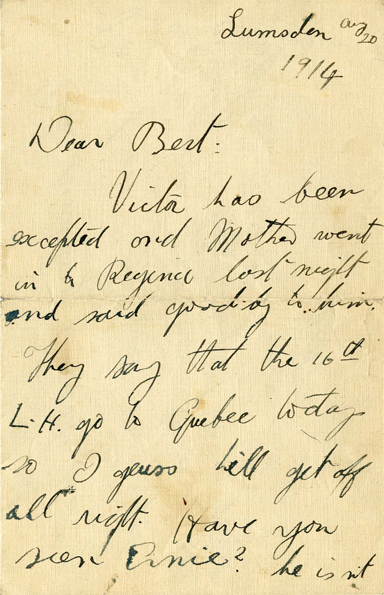 Lumsden Aug 20
1914
Dear Bert:
Victor has been
excepted and Mother went
in to Regina last night
and said goodby to him.
They say that the 16th
L.H. go to Quebec today
so I guess he'll get off
all right. Have you
seen Ernie? he is not